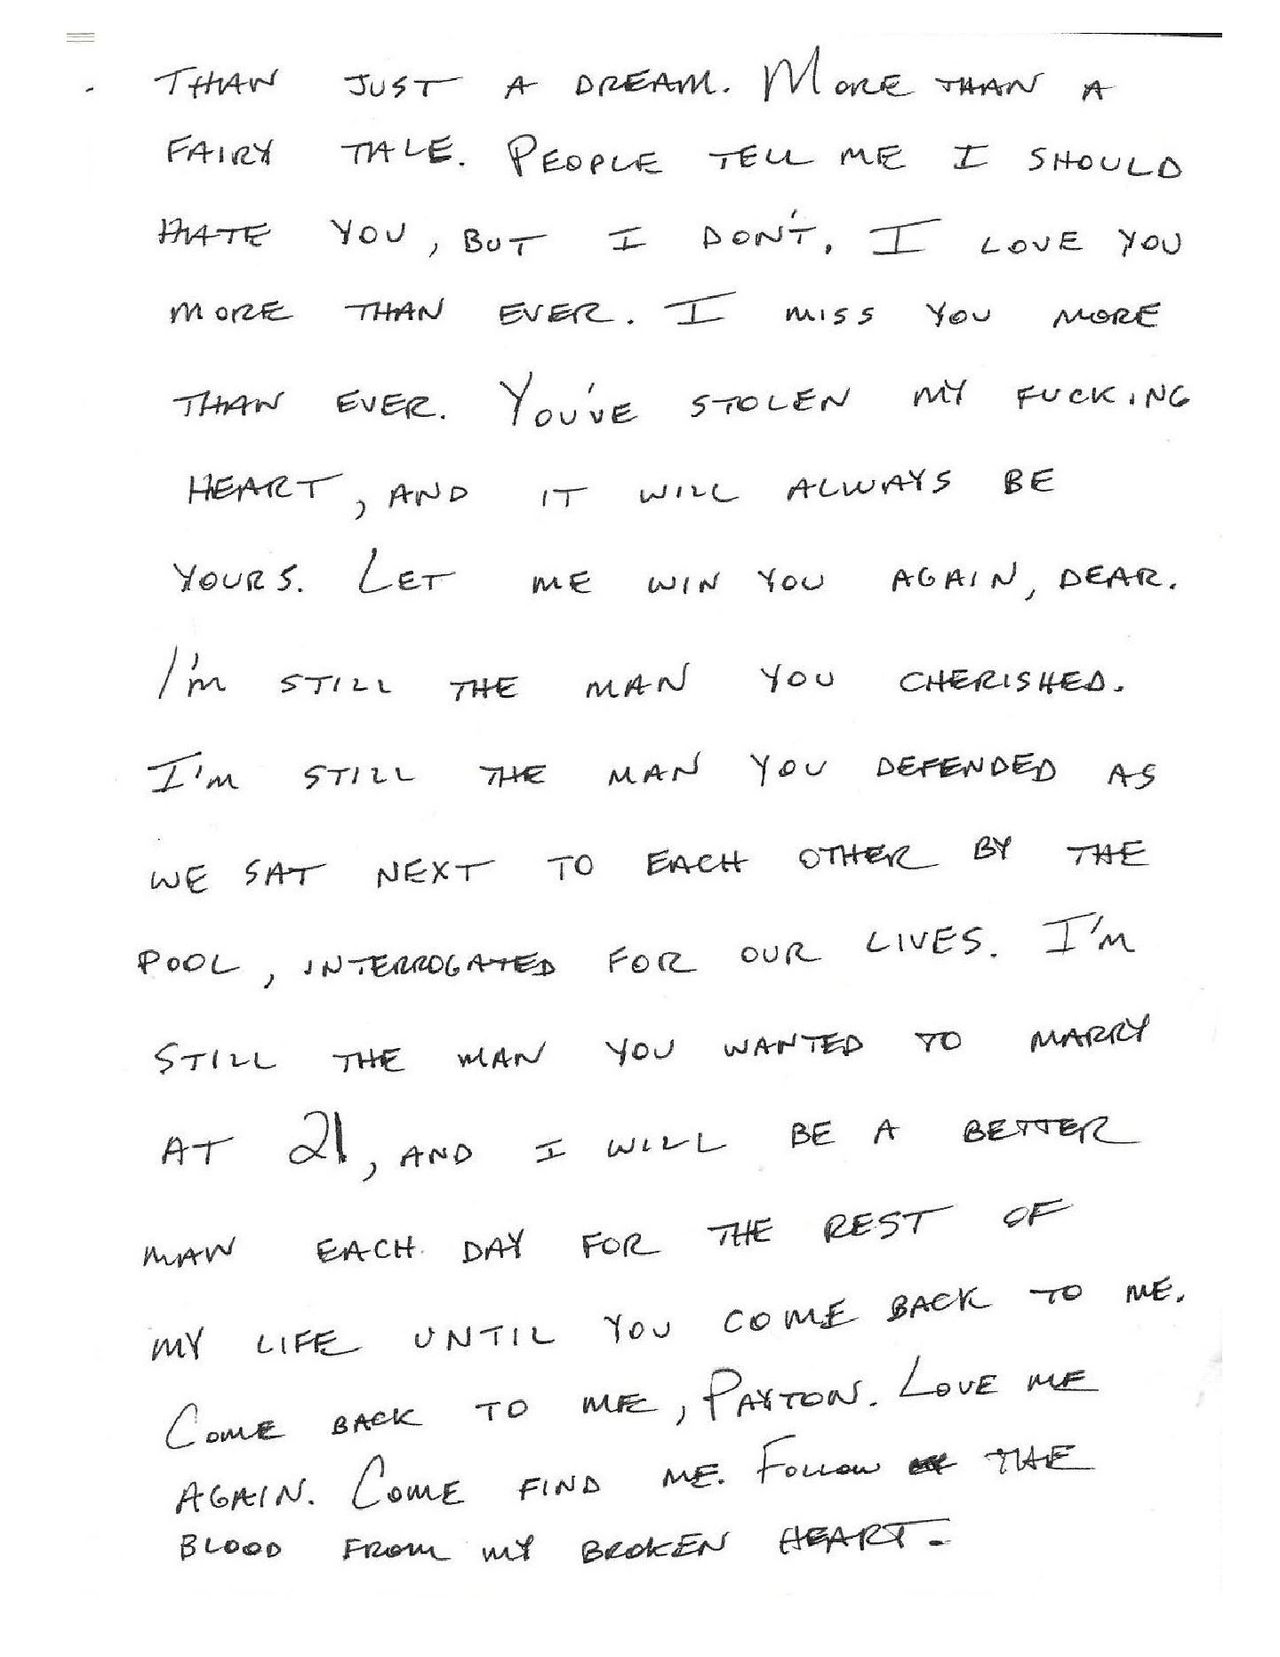 THAN JUST A DREAM. MORE THAN A
FAIRY TALE. PEOPLE TELL ME I SHOULD
HATE YOU, BUT I DON'T. I LOVE YOU
MORE THAN EVER. I MISS YOU MORE
THAN EVER. YOU'VE STOLEN MY FUCKING
HEART, AND IT WILL ALWAYS BE
YOURS. LET ME WIN YOU AGAIN, DEAR.
I'M STILL THE MAN YOU CHERISHED.
I'M STILL THE MAN YOU DEFENDED AS
WE SAT NEXT TO EACH OTHER BY THE
POOL, INTERROGATED FOR OUR LIVES. I'M
STILL THE MAN YOU WANTED TO MARRY
AT 21, AND I WILL BE A BETTER
MAN EACH DAY FOR THE REST OF
MY LIFE UNTIL YOU COME BACK TO ME.
COME BACK TO ME, PAYTON. LOVE ME
AGAIN. COME FIND ME. FOLLOW THE
BLOOD FROM MY BROKEN HEART.